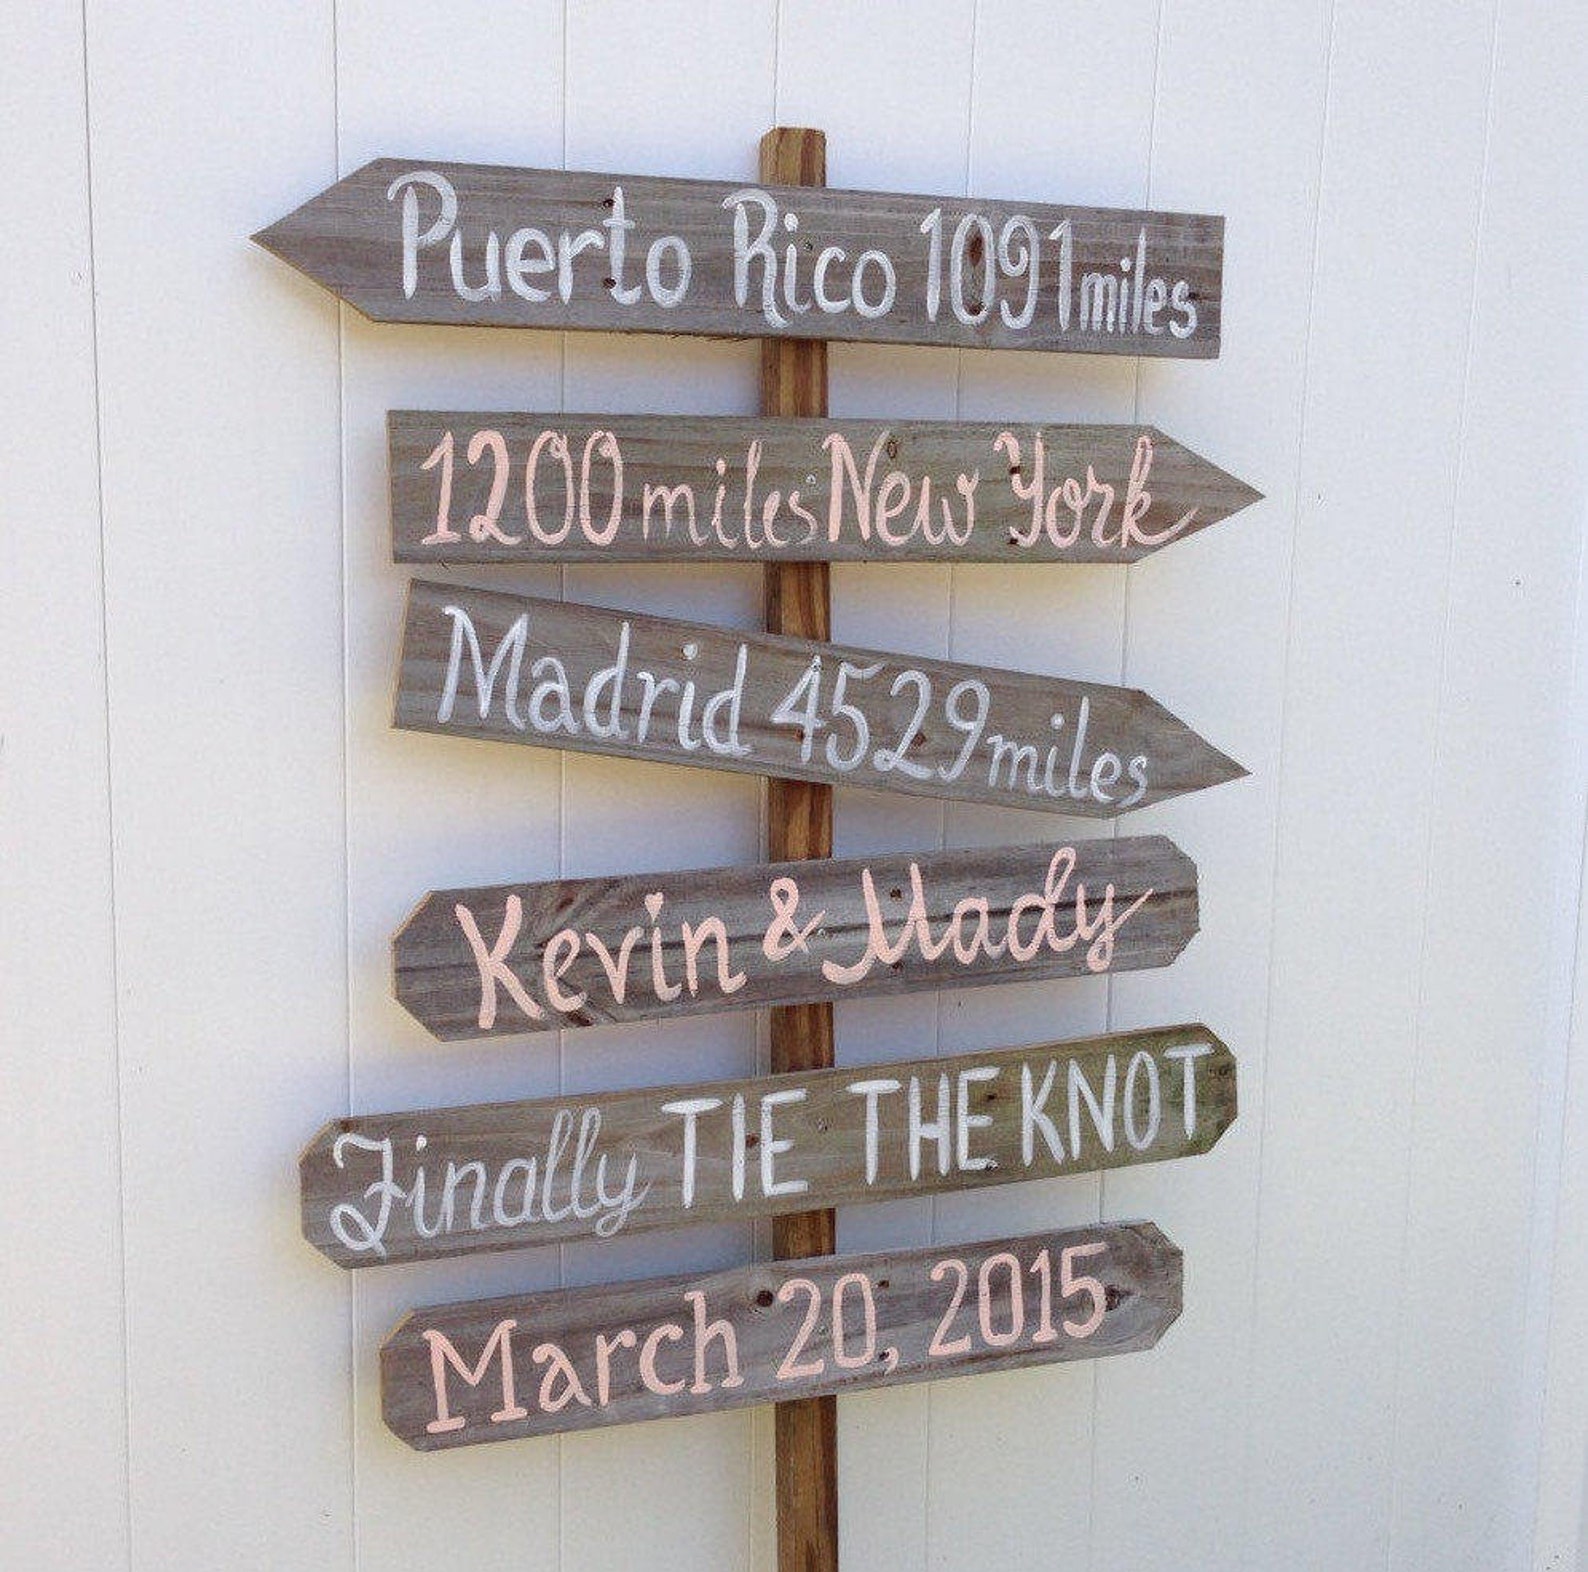 Puerto Rico 1091 miles
1200 miles New York
Madrid 4529 miles
Kevin & Mady
Finally TIE THE KNOT
March 20, 2015